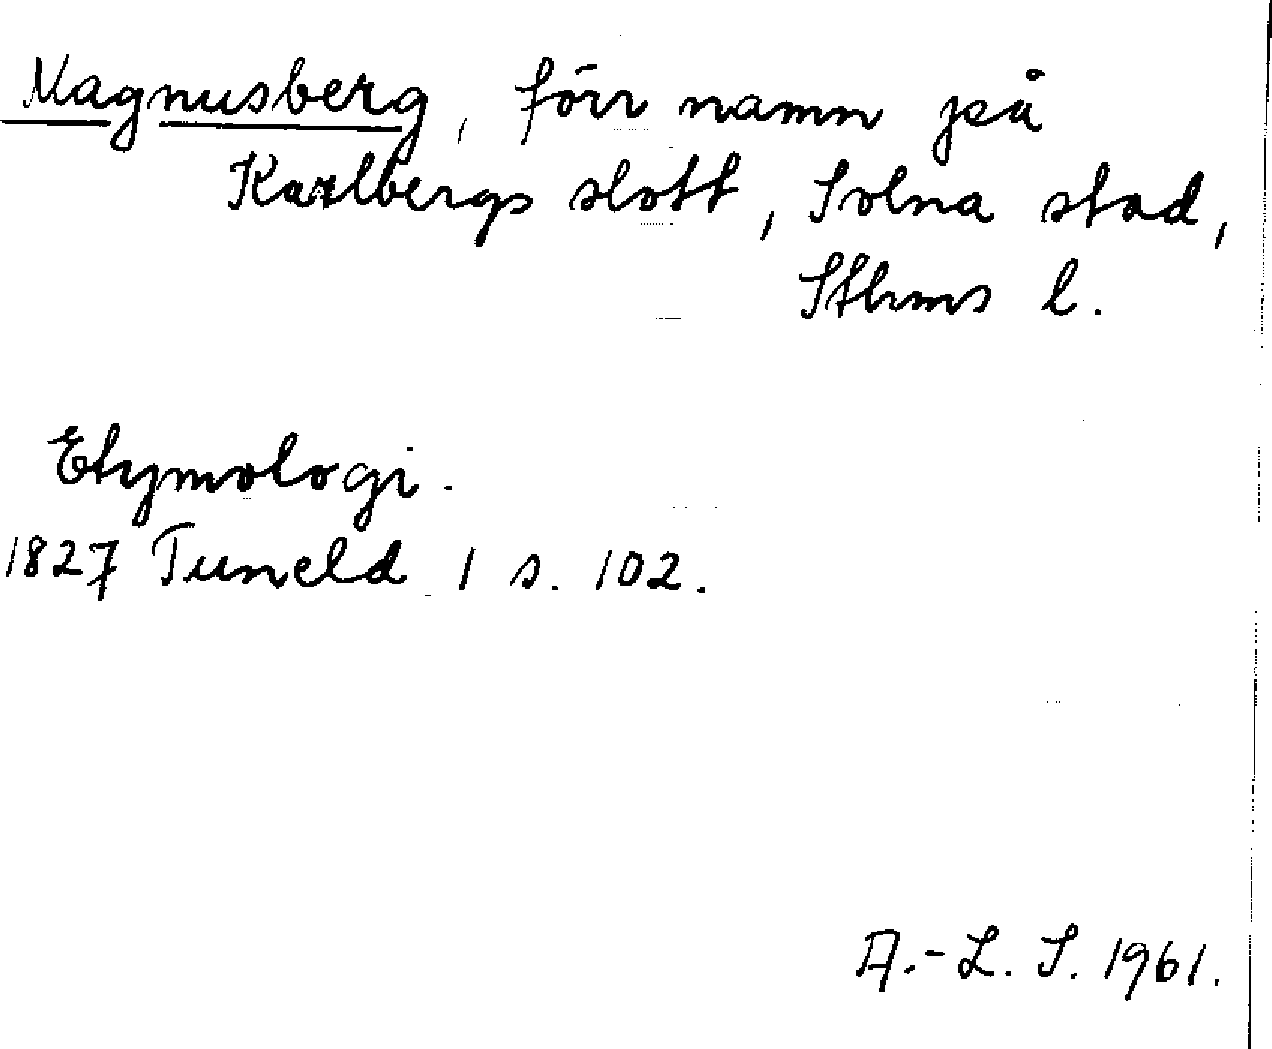 Magnusberg, förr namn på
Karlbergs slott, Solna stad,
Sthms l.
Etymologi.
1827 Tuneld 1 s. 102.
A.-L. S. 1961.